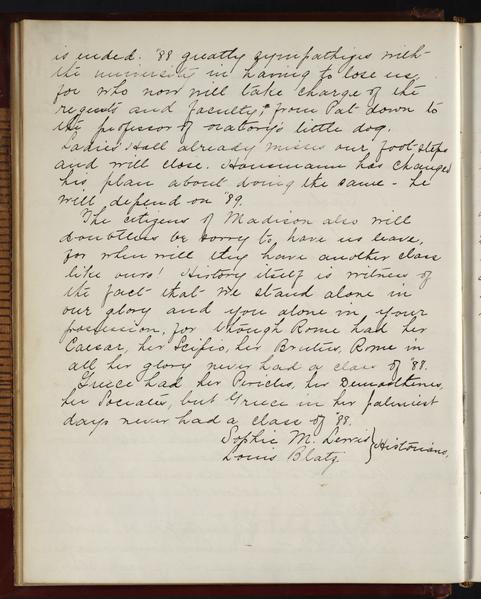 is ended. '88 greatly sympathizes with
the university in having to lose us,
for who now will take charge of the
regents and faculty, from Pat down to
the professor of oratory's little dog.
Ladies Hall already misses our foot-steps
and will close. Hausmann has changed
his plan about doing the same - he
will depend on '89.
The citizens of Madison also will
doubtless be sorry to have us leave,
for when will they have another class
like ours! History itself is witness of
the fact that we stand alone in
our glory and you alone in your
possession, for though Rome had her
Caesar, her Scipio, her Brutus, Rome in
all her glory never had a class of '88.
Greece had her Pericles, her Demosthenes,
her Socrates, but Greece in her palmiest
days never had a class of '88.
Sophie M. Lewis } Historians,
Louis Blatz.